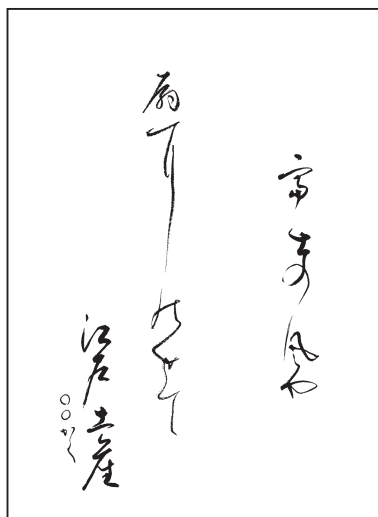 富士の風や
扇にのせて
江戸土産
○○かく